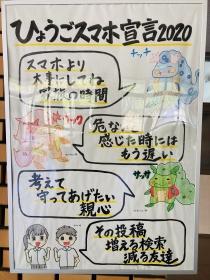 ひょうごスマホ宣言2020
スマホより
大事にしてね
家族の時間
危ないと
感じた時には
もう遅い
考えて
守ってあげたい
親心
サッサ
その投稿
増える検索
減る友達